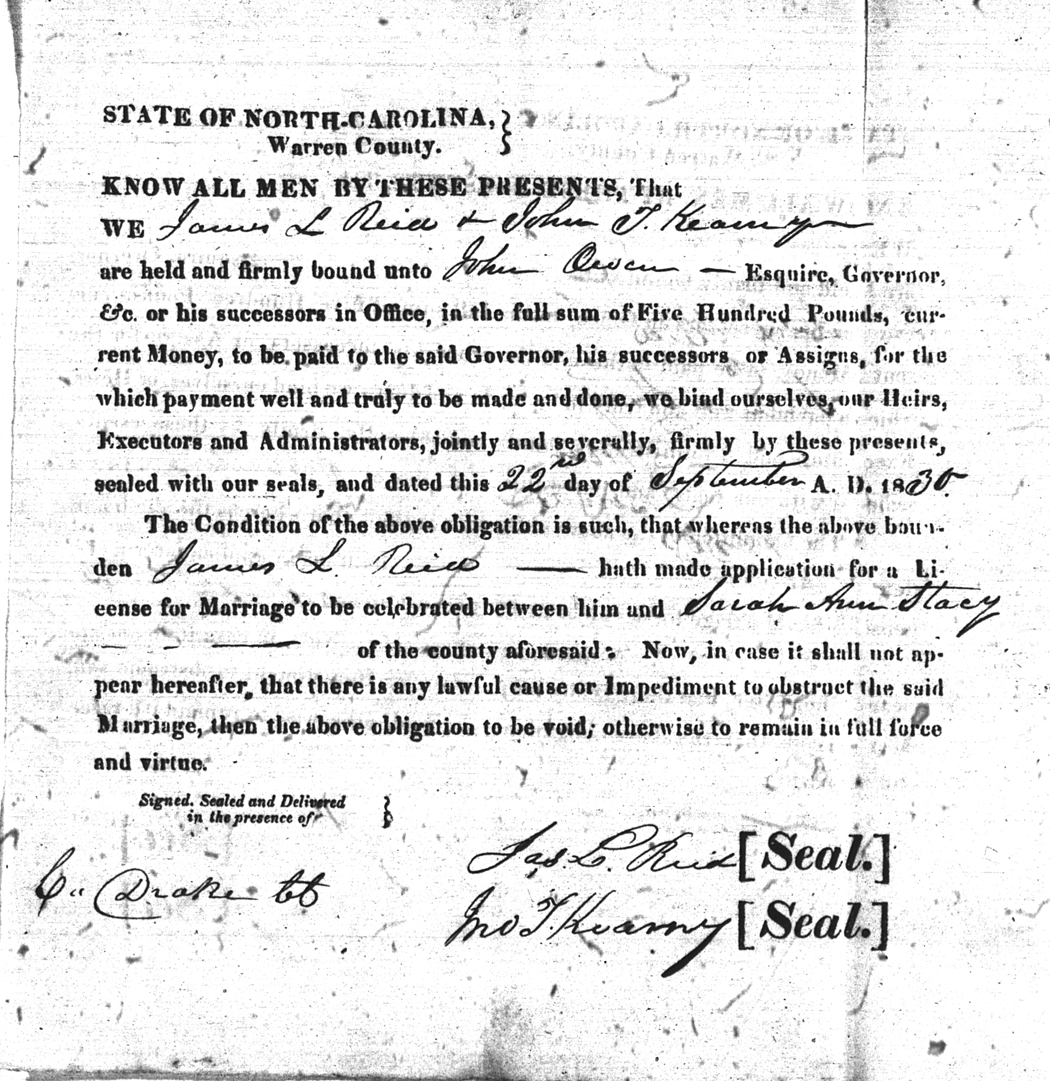 STATE OF NORTH-CAROLINA,
Warren County.
KNOW ALL MEN BY THESE PRESENTS, That
WE James L Reid & John T. Kearny
are held and firmly bound unto John Owen — Esquire, Governor,
&c. or his successors in Office, in the full sum of Five Hundred Pounds, cur-
rent Money, to be paid to the said Governor, his successors or Assigns, for the
which payment well and truly to be made and done, we bind ourselves, our Heirs,
Executors and Administrators, jointly and severally, firmly by these presents,
sealed with our seals, and dated this 22nd day of September A. D. 1830.
The Condition of the above obligation is such, that whereas the above boun-
den James L. Reid — hath made application for a Li-
cense for Marriage to be celebrated between him and Sarah Ann Stacy
of the county aforesaid: Now, in case it shall not ap-
pear hereafter, that there is any lawful cause or Impediment to obstruct the said
Marriage, then the above obligation to be void; otherwise to remain in full force
and virtue.
Signed, Sealed and Delivered
in the presence of
Jas. L. Reid [Seal.]
Drake
Jno T. Kearny [Seal.]